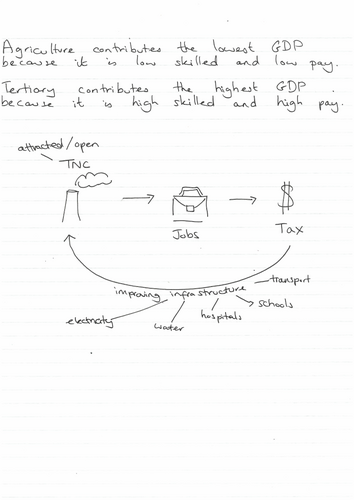 Agriculture contributes the lowest GDP
because it is low skilled and low pay.
Tertiary contributes the highest GDP
because it is high skilled and high pay.
attracted/open
TNC
Jobs
Tax
$
improving infrastructure
transport
schools
hospitals
water
electricity